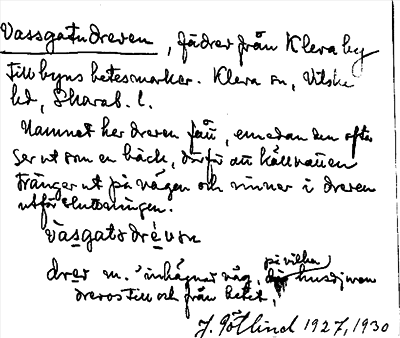 Vassgatudreven, fädrev från Klera by
till byns betesmarker. Klera sn, Vilske
hd, Skarab. l.
Namnet har dreven fått, emedan den ofta
ser ut som en bäck, därför att källvatten
tränger ut på vägen och rinner i dreven
utför sluttningen.
vasgatudrévən
drev m. 'inhägnad väg, på vilken husdjuren
drevos till och från betet.'
J. Götlind 1927, 1930